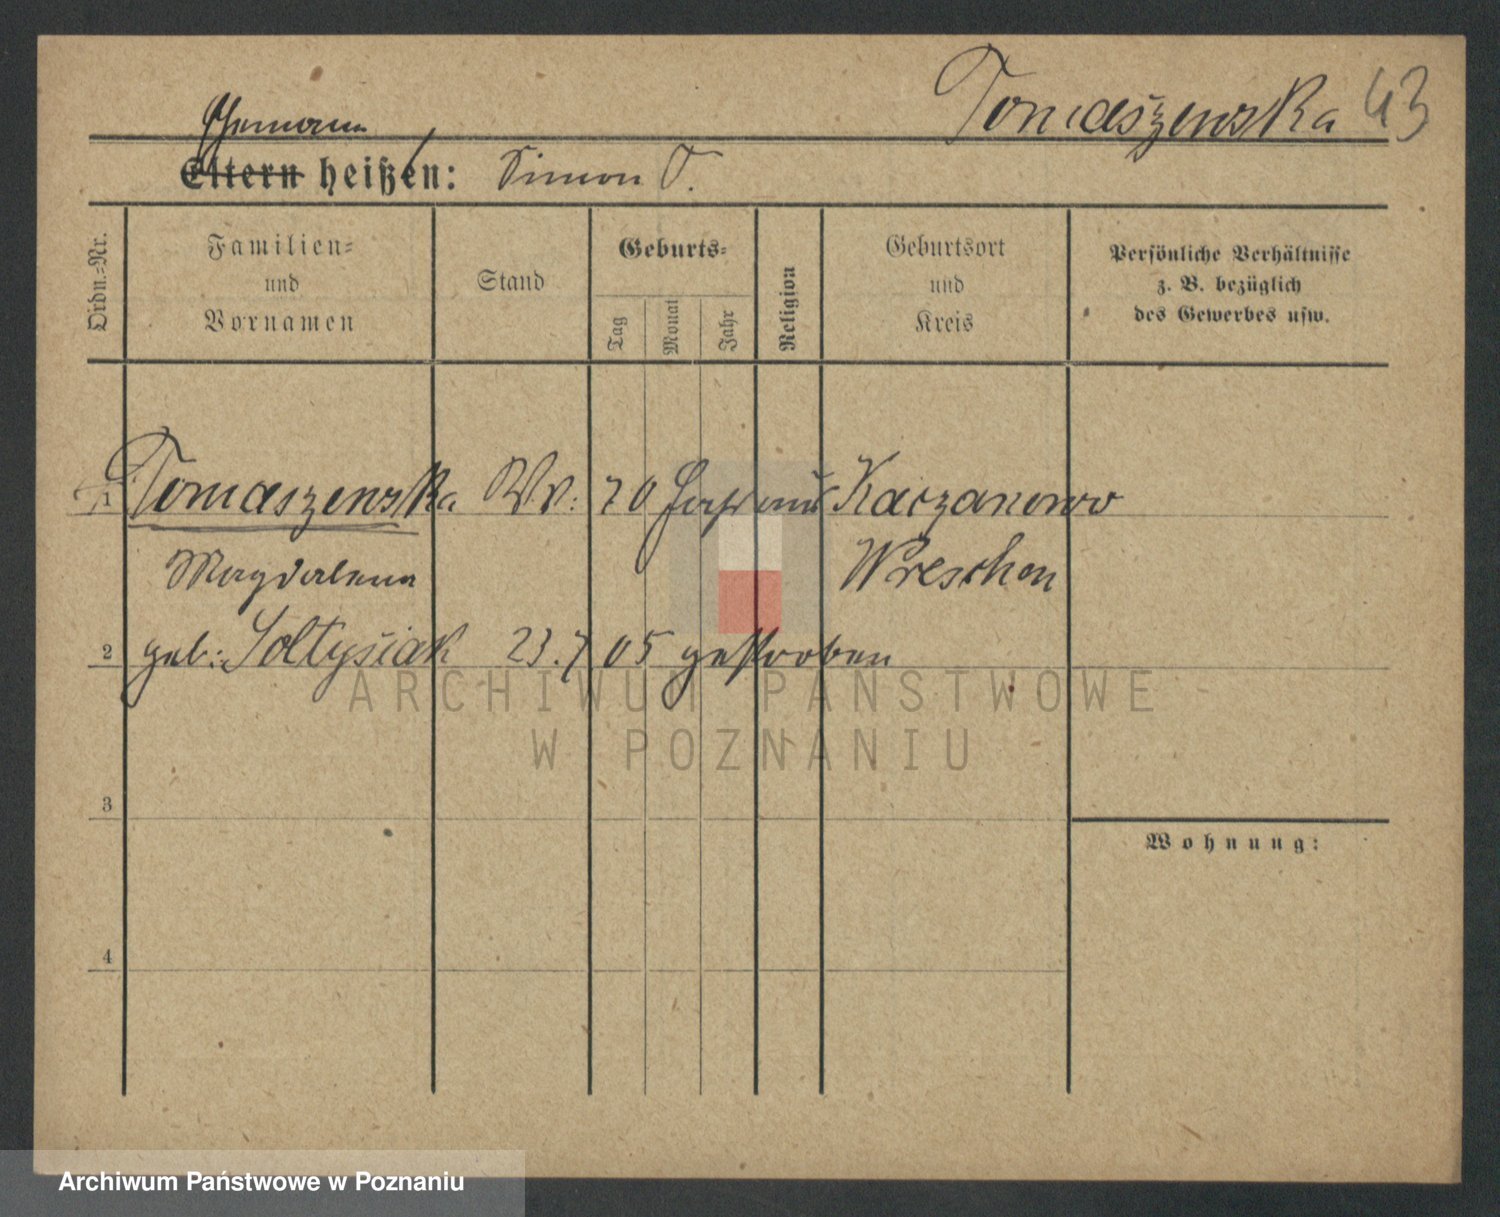 Tomaszewska 43
Ehemann
Eltern heißen: Simon T.
Ordn.-Nr.
Familien-
und
Vornamen
Stand
Geburts-
Tag
Monat
Jahr
Religion
Geburtsort
und
Kreis
Persönliche Verhältnisse
z. B. bezüglich
des Gewerbes usw.
1 Tomaszewska Ww. 70 Jahr aus Kaczanowo
Magdalena Wreschen
2 geb: Soltysiak 23.7 05 gestorben
ARCHIWUM PAŃSTWOWE
W POZNANIU
3
Wohnung:
4
Archiwum Państwowe w Poznaniu